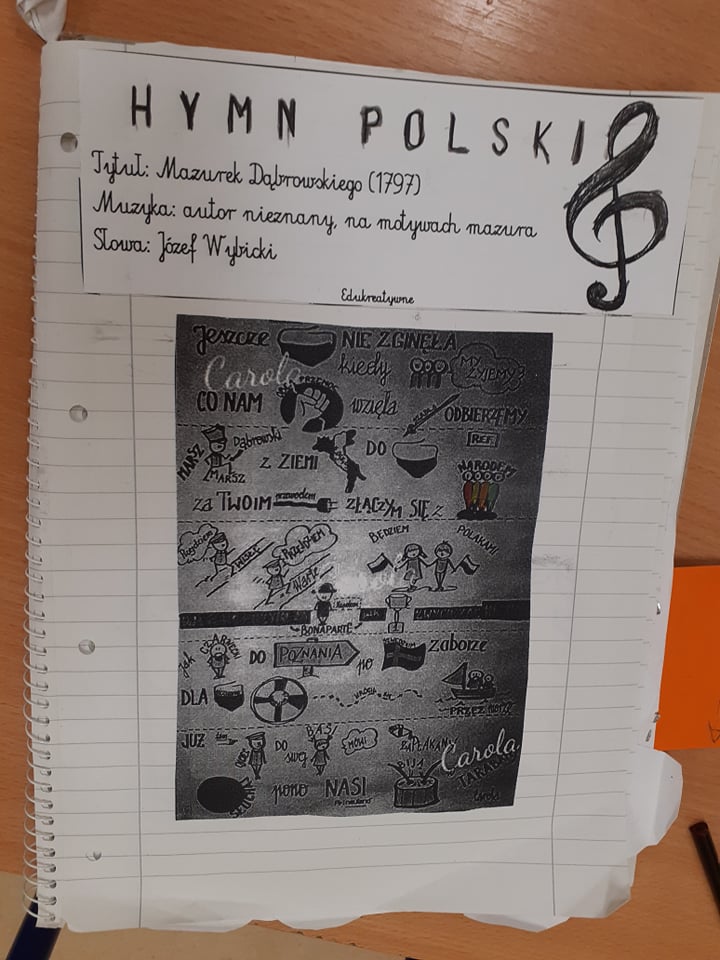 HYMN POLSKI
Tytuł: Mazurek Dąbrowskiego (1797)
Muzyka: autor nieznany, na motywach mazura
Słowa: Józef Wybicki
Edukreatywne
Jeszcze NIE ZGINĘŁA
Carola kiedy MY ŻYJEMY
CO NAM wzięła ODBIERZEMY
REF.
MARSZ MARSZ Dąbrowski
z ZIEMI DO NARODEM
za TWOIM przewodem ZŁĄCZYM SIĘ z
Przejdziem WISŁĘ PRZEJDZIEM WARTĘ BĘDZIEM POLAKAMI
BONAPARTE
jak CZARNIECKI DO POZNANIA po zaborze
DLA PRZEZ MORZE
JUŻ DO swej BASI MÓWI ZAPŁAKANY
Carola
SŁUCHAJ pono NASI BIJĄ
Printoteka